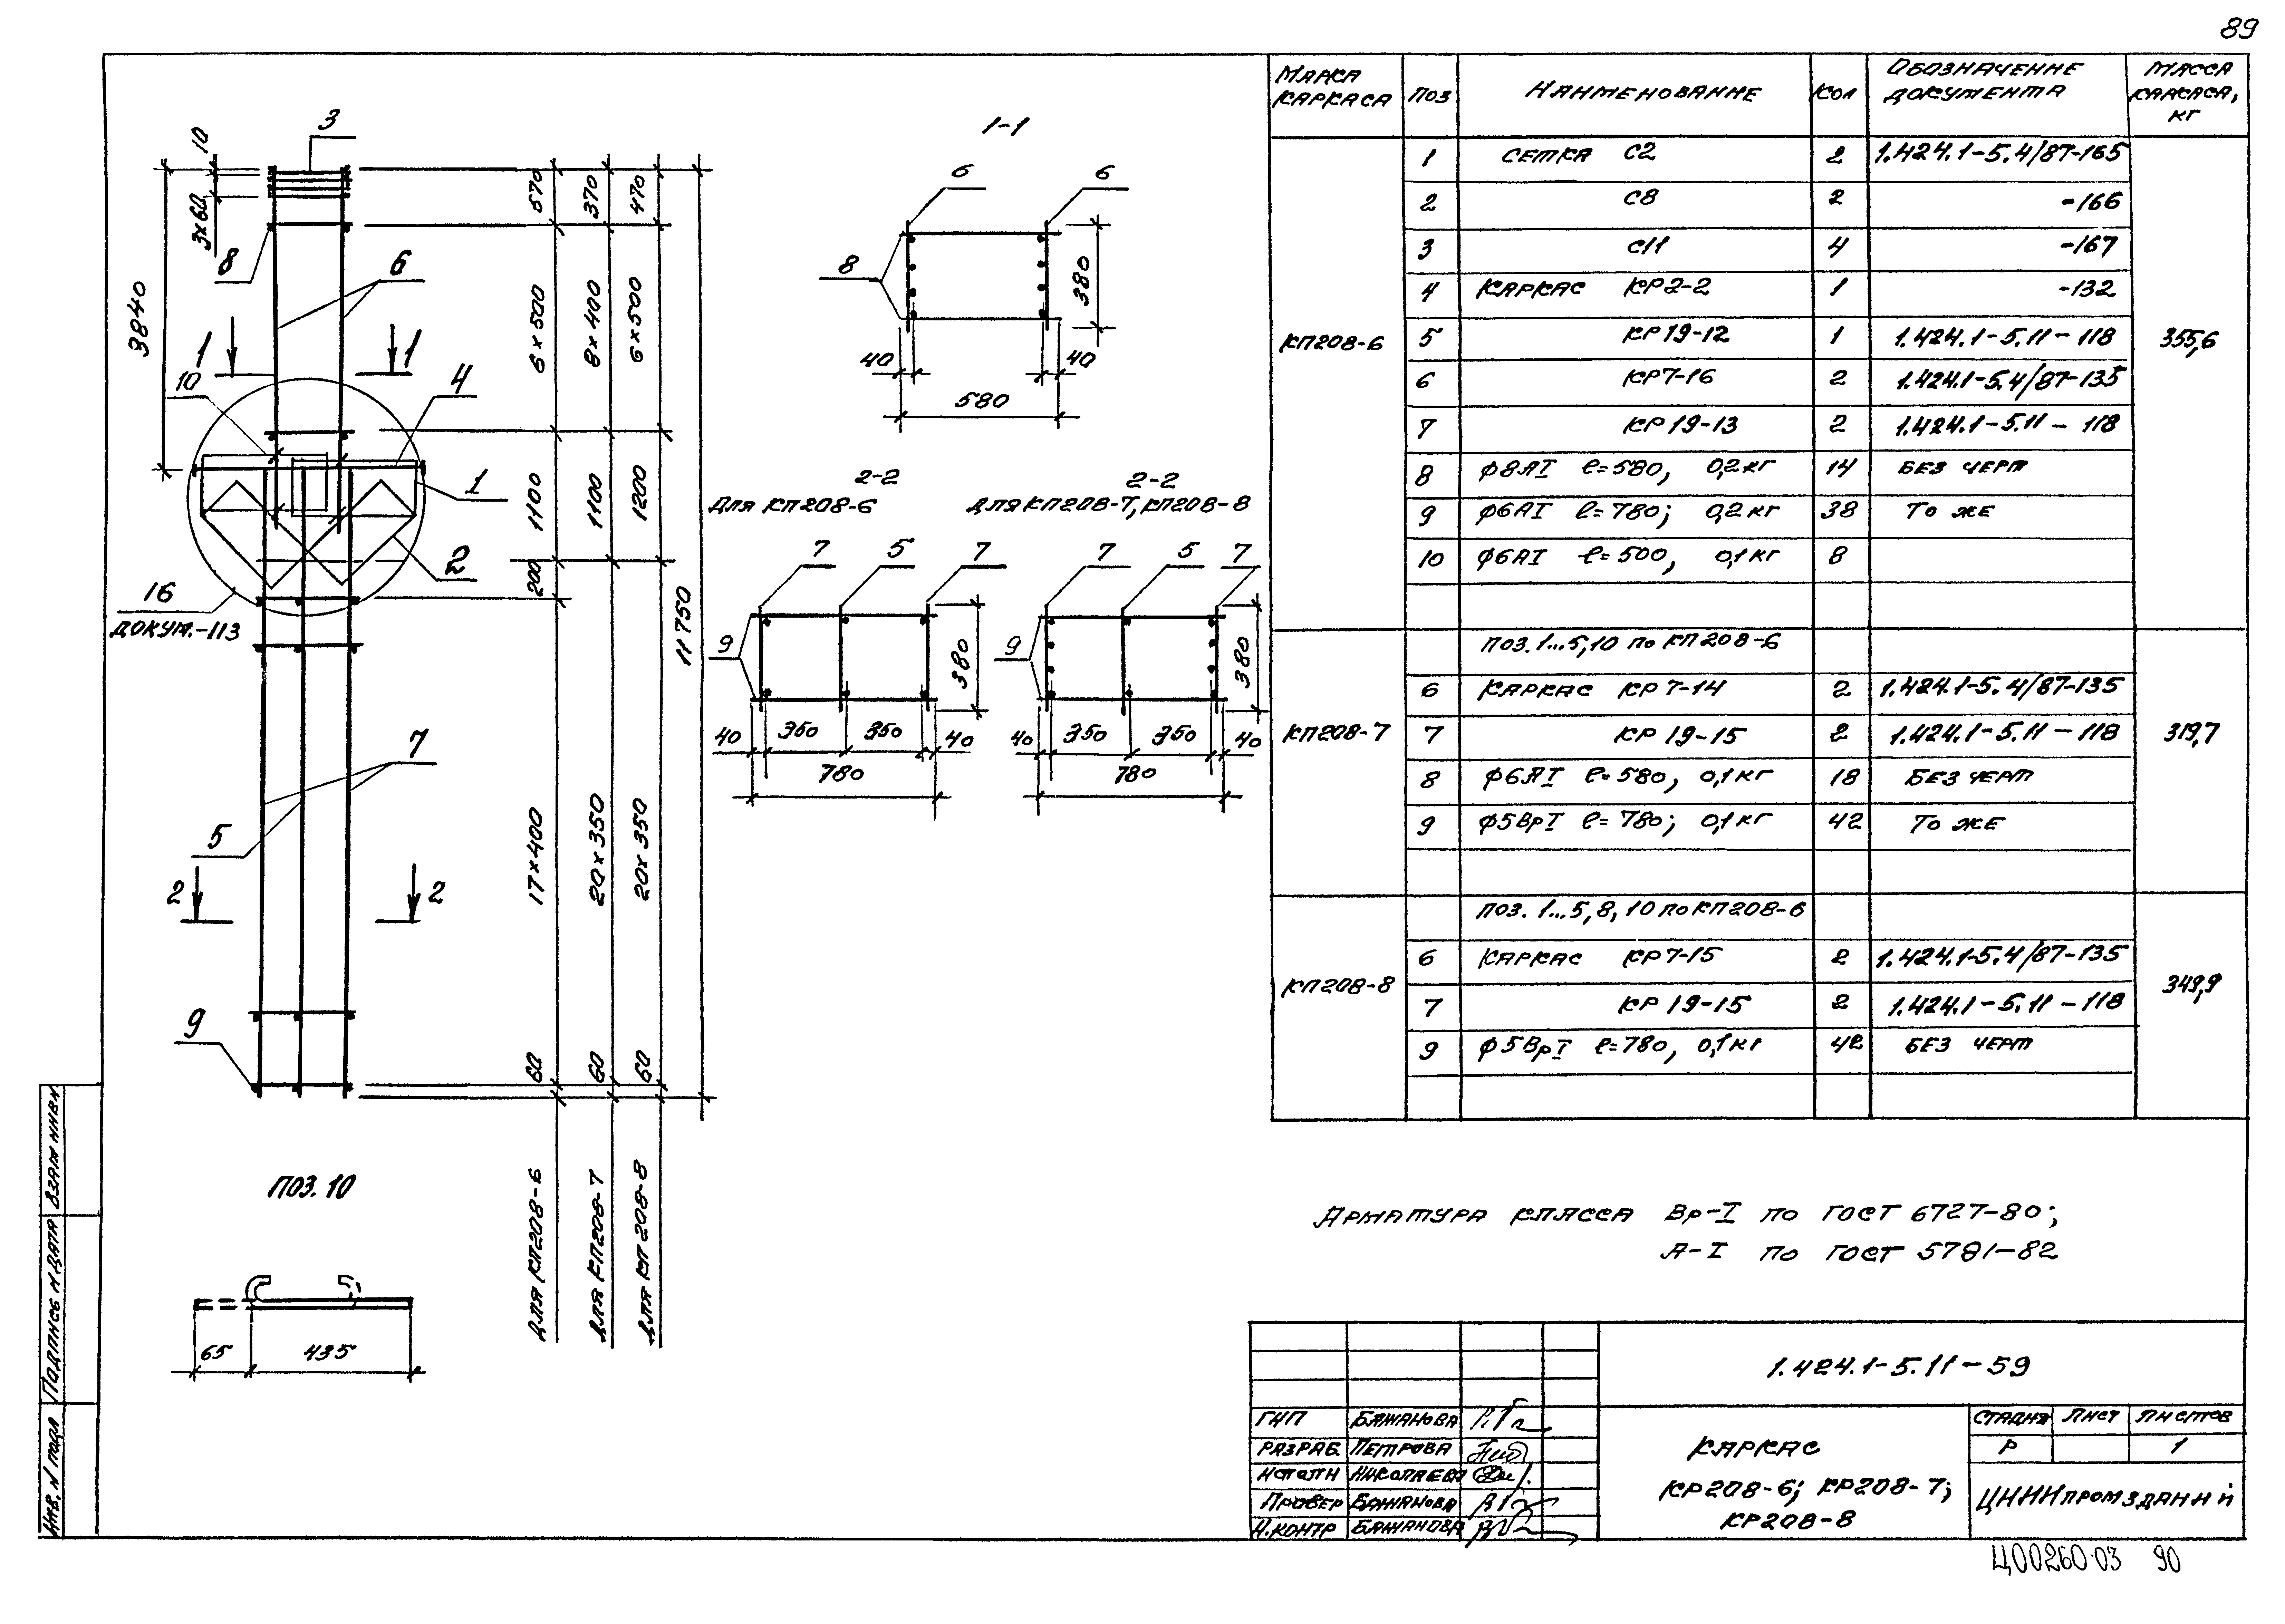 89
3
10
3×60
8
6
3840
1
1
10
4
1
2
16
ДОКУМ.-113
7
5
2
2
9
570
370
470
6×500
8×400
6×500
1100
1100
1200
200
11750
17×400
20×350
20×350
60
60
60
ДЛЯ КП208-6
ДЛЯ КП208-7
ДЛЯ КП208-8
1-1
6
6
8
380
40
40
580
2-2
ДЛЯ КП208-6
7
5
7
9
380
40
350
350
40
780
2-2
ДЛЯ КП208-7, КП208-8
7
5
7
9
380
40
350
350
40
780
ПОЗ. 10
65
435
МАРКА КАРКАСА
ПОЗ
НАИМЕНОВАНИЕ
КОЛ
ОБОЗНАЧЕНИЕ ДОКУМЕНТА
МАССА КАРКАСА, КГ
КП208-6
355,6
1 СЕТКА С2 2 1.424.1-5.4/87-165
2 С8 2 -166
3 С11 4 -167
4 КАРКАС КР2-2 1 -132
5 КР19-12 1 1.424.1-5.11-118
6 КР7-16 2 1.424.1-5.4/87-135
7 КР19-13 2 1.424.1-5.11-118
8 ф8АI ℓ=580, 0,2кг 14 БЕЗ ЧЕРТ
9 ф6АI ℓ=780; 0,2кг 38 ТО ЖЕ
10 ф6АI ℓ=500, 0,1кг 8
КП208-7
319,7
ПОЗ. 1...5,10 по КП208-6
6 КАРКАС КР7-14 2 1.424.1-5.4/87-135
7 КР19-15 2 1.424.1-5.11-118
8 ф6АI ℓ=580, 0,1кг 18 БЕЗ ЧЕРТ
9 ф5ВрI ℓ=780; 0,1кг 42 ТО ЖЕ
КП208-8
349,9
ПОЗ. 1...5, 8, 10 по КП208-6
6 КАРКАС КР7-15 2 1.424.1-5.4/87-135
7 КР19-15 2 1.424.1-5.11-118
9 ф5ВрI ℓ=780, 0,1кг 42 БЕЗ ЧЕРТ
АРМАТУРА КЛАССА Вр-I по ГОСТ 6727-80;
А-I по ГОСТ 5781-82
1.424.1-5.11-59
ГИП БАЖАНОВА
РАЗРАБ. ПЕТРОВА
ИСПОЛН НИКОЛАЕВА
ПРОВЕР БАЖАНОВА
Н.КОНТР БАЖАНОВА
КАРКАС
КР208-6; КР208-7;
КР208-8
СТАДИЯ ЛИСТ ЛИСТОВ
Р 1
ЦНИИпромзданий
Ц00260-03 90
ИНВ. N ПОДЛ
ПОДПИСЬ И ДАТА
ВЗАМ ИНВ N